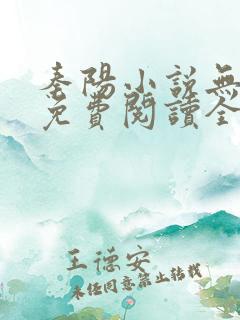 秦陽小說無
免費閱讀全
王德安
未經同意禁止轉載